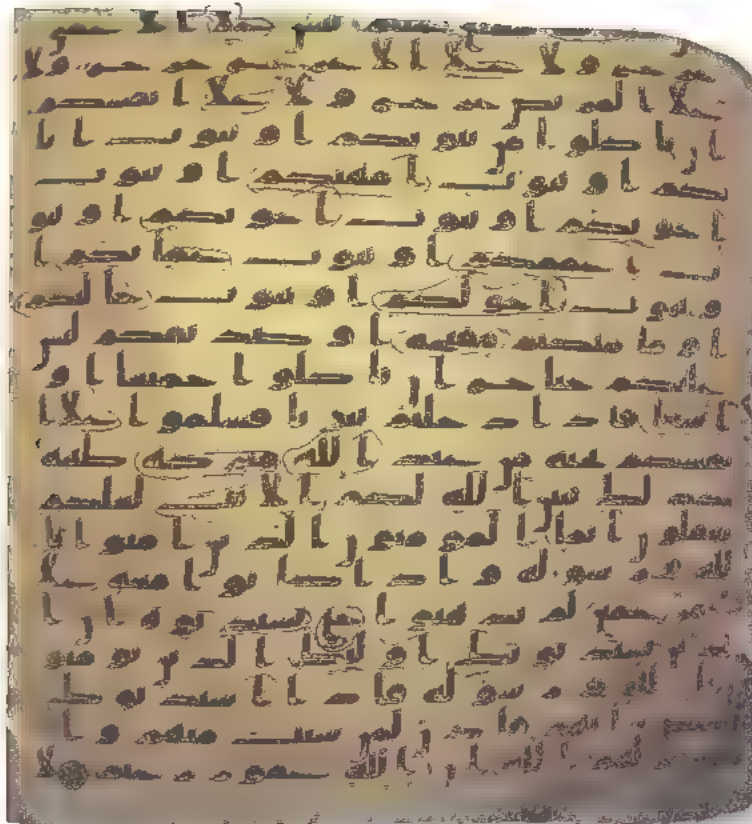 ليس على الاعمى
حرج ولا على الاعرج حرج ولا
على المريض حرج ولا على انفسكم
ان تاكلوا من بيوتكم او بيوت ابا
ئكم او بيوت امهتكم او بيوت
اخونكم او بيوت اخوتكم او بيو
ت اعممكم او بيوت عمتكم ا
و بيوت اخولكم او بيوت خلتكم
او ما ملكتم مفتحه او صديقكم ليس
عليكم جناح ان تاكلوا جميعا او
اشتاتا فاذا دخلتم بيوتا فسلموا على ا
نفسكم تحية من عند الله مبركة طيبة
كذلك يبين الله لكم الايت لعلكم
تعقلون انما المومنون الذين امنوا با
لله ورسوله واذا كانوا معه على
امر جمع لم يذهبوا حتى يستذنوه ان ا
لذين يستذنونك اولئك الذين يومنو
ن بالله ورسوله فاذا استذنوك
لبعض شانهم فاذن لمن شئت منهم وا
ستغفر لهم الله ان الله غفور رحيم لا